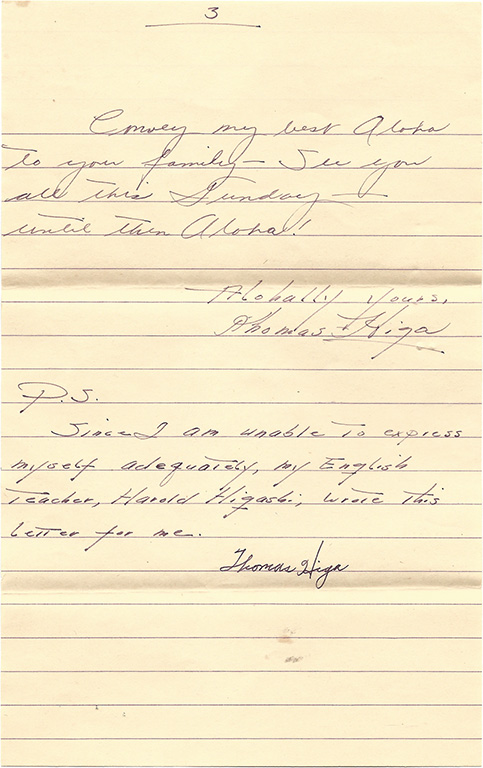 3
Convey my best Aloha
to your family — See you
all this Sunday —
until then Aloha!
Alohally yours,
Thomas T Higa
P.S.
Since I am unable to express
myself adequately, my English
teacher, Harold Higashi, wrote this
letter for me.
Thomas Higa